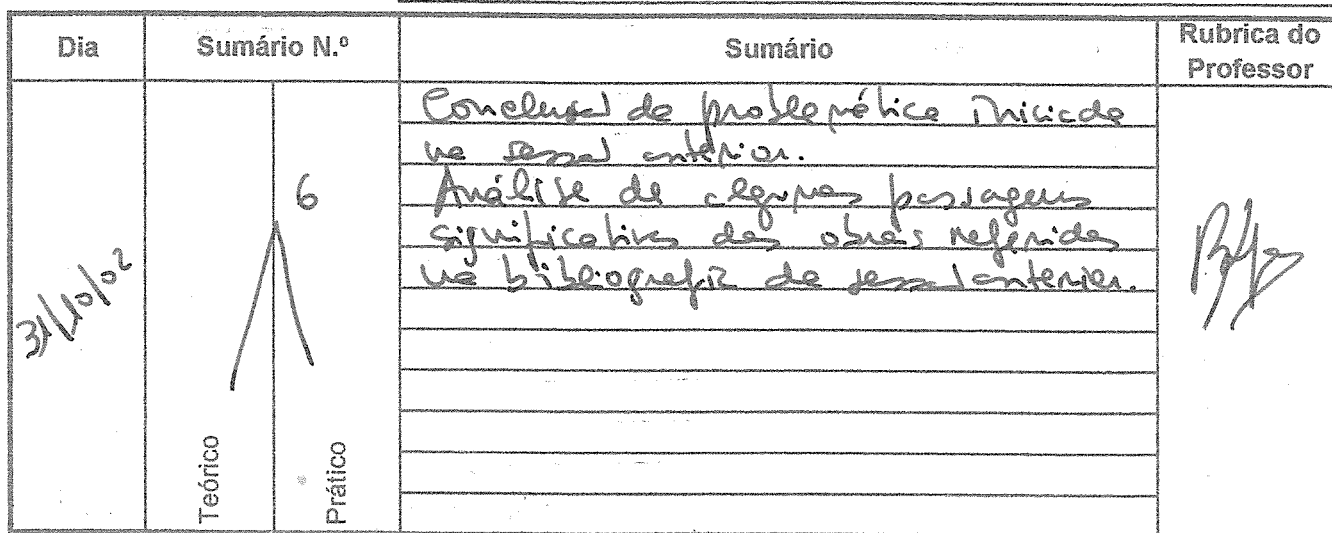 Dia
Sumário N.º
Sumário
Rubrica do
Professor
31/10/02
6
Teórico
Prático
Conclusão da problemática iniciada
na sessão anterior.
Análise de algumas passagens
significativas das obras referidas
na bibliografia da sessão anterior.